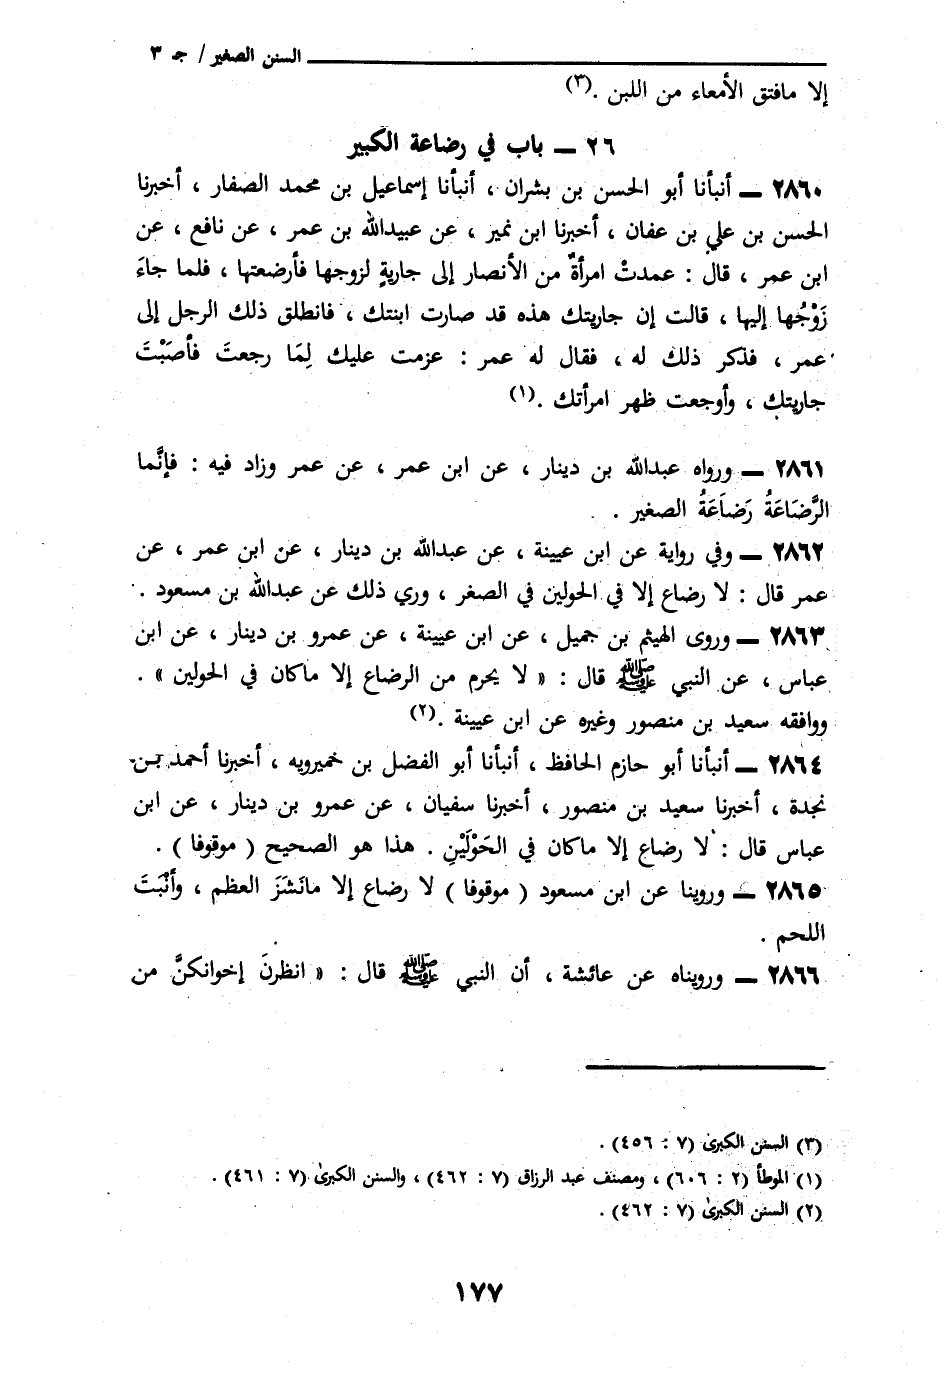 السنن الصغير / جـ ٣
إلا مافتق الأمعاء من اللبن .(٣)
٢٦ ــ باب في رضاعة الكبير
٢٨٦٠ ــ أنبأنا أبو الحسن بن بشران ، أنبأنا إسماعيل بن محمد الصفار ، أخبرنا
الحسن بن علي بن عفان ، أخبرنا ابن نمير ، عن عبيدالله بن عمر ، عن نافع ، عن
ابن عمر ، قال : عمدتْ امرأةٌ من الأنصار إلى جاريةٍ لزوجها فأرضعتها ، فلما جاءَ
زَوْجُها إليها ، قالت إن جاريتك هذه قد صارت ابنتك ، فانطلق ذلك الرجل إلى
عمر ، فذكر ذلك له ، فقال له عمر : عزمت عليك لِمَا رجعتَ فأصَبْتَ
جاريتك ، وأوجعت ظهر امرأتك .(١)
٢٨٦١ ــ ورواه عبدالله بن دينار ، عن ابن عمر ، عن عمر وزاد فيه : فإنَّما
الرَّضَاعَةُ رَضاَعَةُ الصغير .
٢٨٦٢ ــ وفي رواية عن ابن عيينة ، عن عبدالله بن دينار ، عن ابن عمر ، عن
عمر قال : لا رضاع إلا في الحولين في الصغر ، وري ذلك عن عبدالله بن مسعود .
٢٨٦٣ ــ وروى الهيثم بن جميل ، عن ابن عيينة ، عن عمرو بن دينار ، عن ابن
عباس ، عن النبي ﷺ قال : « لا يحرم من الرضاع إلا ماكان في الحولين » .
ووافقه سعيد بن منصور وغيره عن ابن عيينة .(٢)
٢٨٦٤ ــ أنبأنا أبو حازم الحافظ ، أنبأنا أبو الفضل بن خميرويه ، أخبرنا أحمد بن
نجدة ، أخبرنا سعيد بن منصور ، أخبرنا سفيان ، عن عمرو بن دينار ، عن ابن
عباس قال : لا رضاع إلا ماكان في الحَوْلَيْنِ . هذا هو الصحيح ( موقوفا ) .
٢٨٦٥ ــ وروينا عن ابن مسعود ( موقوفا ) لا رضاع إلا مانَشَزَ العظم ، وأنْبَتَ
اللحم .
٢٨٦٦ ــ ورويناه عن عائشة ، أن النبي ﷺ قال : « انظرنَ إخوانكنَّ من
(٣) السنن الكبرى (٧ : ٤٥٦) .
(١) الموطأ (٢ : ٦٠٦) ، ومصنف عبد الرزاق (٧ : ٤٦٢) ، والسنن الكبرىٰ (٧ : ٤٦١) .
(٢) السنن الكبرىٰ (٧ : ٤٦٢) .
١٧٧